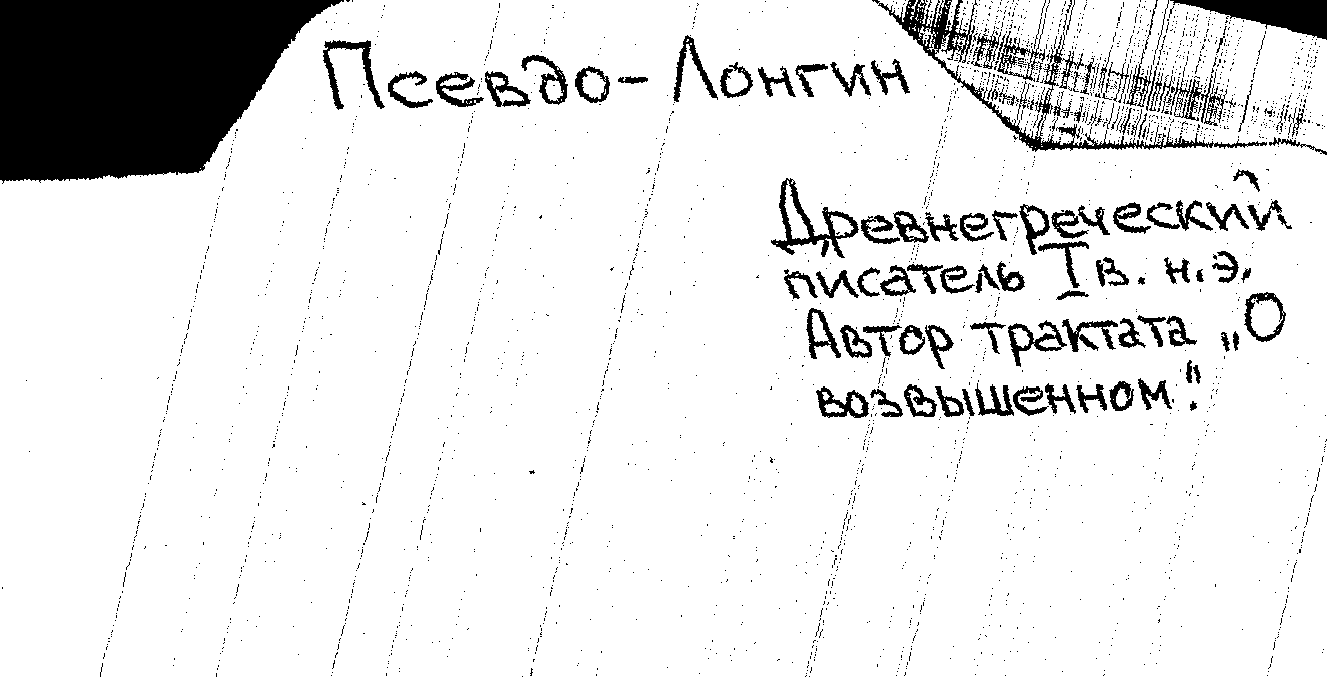 Псевдо-Лонгин
Древнегреческий
писатель I в. н.э.
Автор трактата „О
возвышенном".